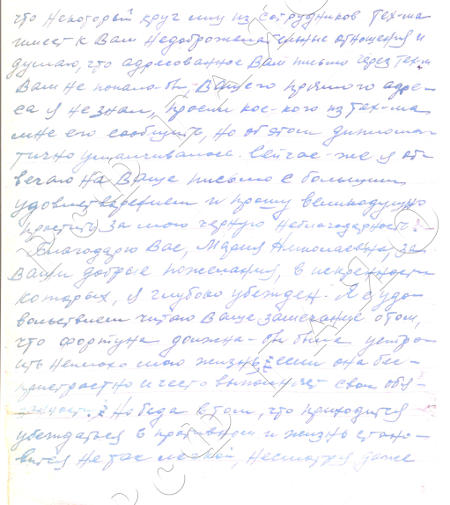 что некоторый круг лиц из сотрудников тех-ма
имеет к Вам недоброжелательные отношения и
думаю, что адресованное Вам письмо через тех-м
Вам не попало-бы, Вашего прямого адре-
са я не знал, просил кое-кого из тех-ма
мне его сообщить, но об этом диплома-
тично умалчивалось. Сейчас-же я от-
вечаю на Ваше письмо с большим
удовлетворением и прошу великодушно
простить за мою черную неблагодарность.
Благодарю Вас, Мария Николаевна, за
Ваши добрые пожелания, в искренности
которых, я глубоко убежден. Я с удо-
вольствием читаю Ваше замечание о том,
что фортуна должна-бы была устро-
ить неплохо мою жизнь, если она бес-
пристрастно и чисто выполняет свои обя-
занности. Но беда в том, что приходится
убеждаться в противном и жизнь стано-
вится не так легкой, несмотря даже